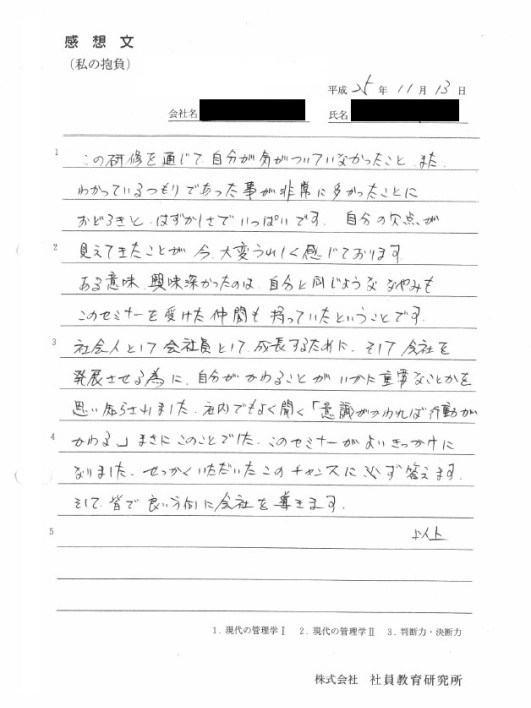 感想文
(私の抱負)
平成 25 年 11 月 13 日
会社名
氏名
1
この研修を通じて、自分が気がついていなかったこと、また
わかっているつもりであった事が非常に多かったことに
おどろきと、はずかしさでいっぱいです。自分の欠点が
2
見えてきたことが今、大変うれしく感じております。
ある意味、興味深かったのは、自分と同じような なやみも
このセミナーを受けた仲間も持っていたということです。
3
社会人として会社員として、成長するために、そして会社を
発展させる為に、自分がかわることがいかに重要なことかを
思い知らされました。社内でもよく聞く「意識がかわれば行動が
4
かわる」まさにこのことでした。このセミナーがよいきっかけに
なりました。せっかくいただいたこのチャンスに必ず答えます。
そして、皆で良い方向に会社を導きます。
5
以上
1. 現代の管理学Ⅰ 2. 現代の管理学Ⅱ 3. 判断力・決断力
株式会社 社員教育研究所